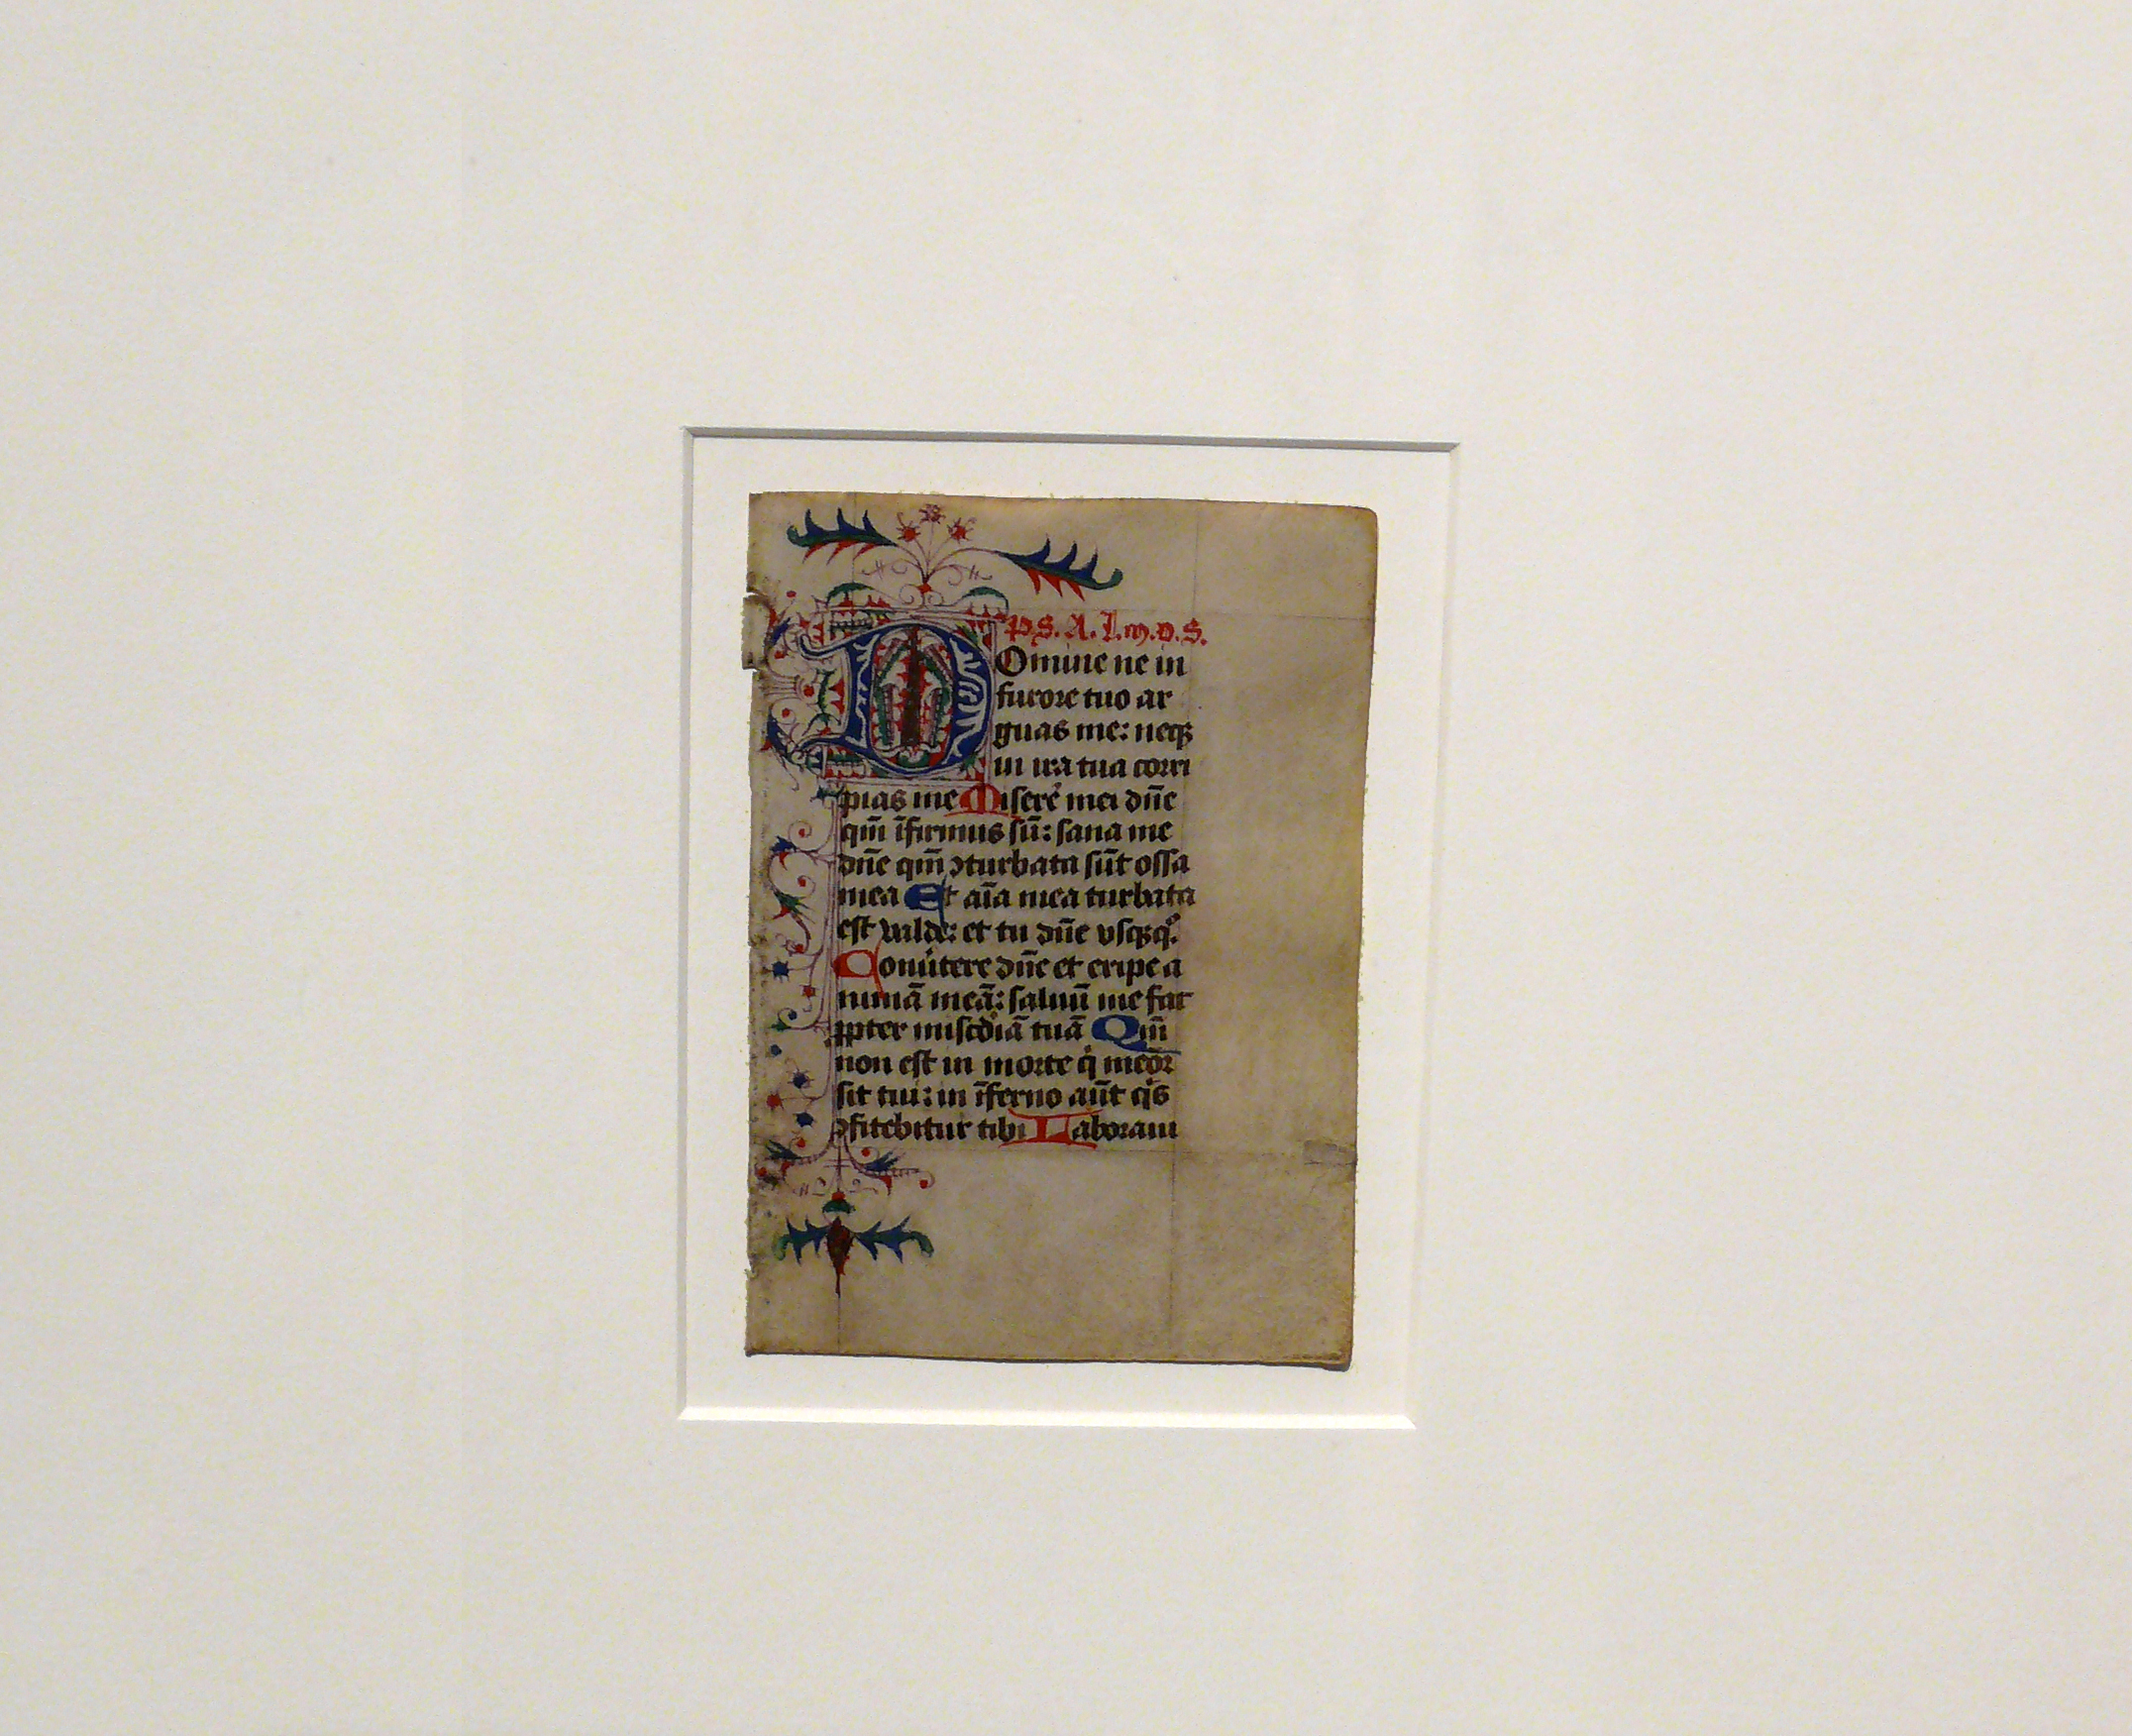 P.S.A.L.m.o.S.
DOmine ne in
furore tuo ar
guas me: neqꝫ
in ira tua corri
pias me Miserẽ mei dñe
qm̃ ĩfirmus sũ: sana me
dñe qm̃ ꝯturbata sũt ossa
mea Et aĩa mea turbata
est valde: et tu dñe vsqꝫq̊.
Conũtere dñe et eripe a
nimã meã: saluũ me fac
ꝓpter miscdiã tuã Qm̃
non est in morte q̇ meõr
sit tui: in ĩferno aũt q̇s
ꝯfitebitur tibi Laboraui